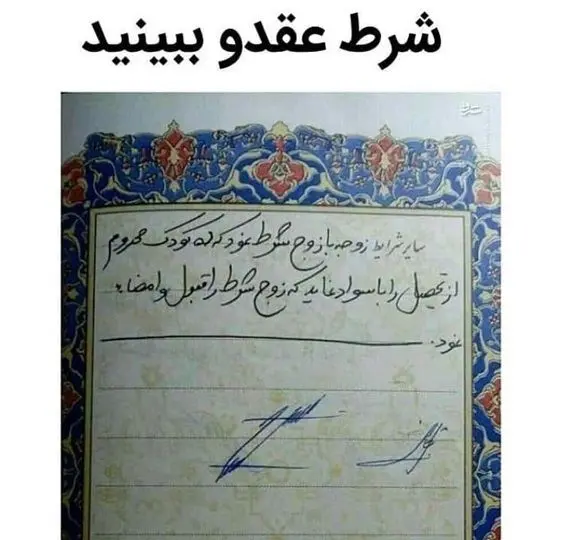 شرط عقدو ببینید
مشرق
سایر شرایط زوجه با زوج شرط نمود که کودک محروم
از تحصیل را با سواد نماید که زوج شرط را قبول و امضاء
نمود.